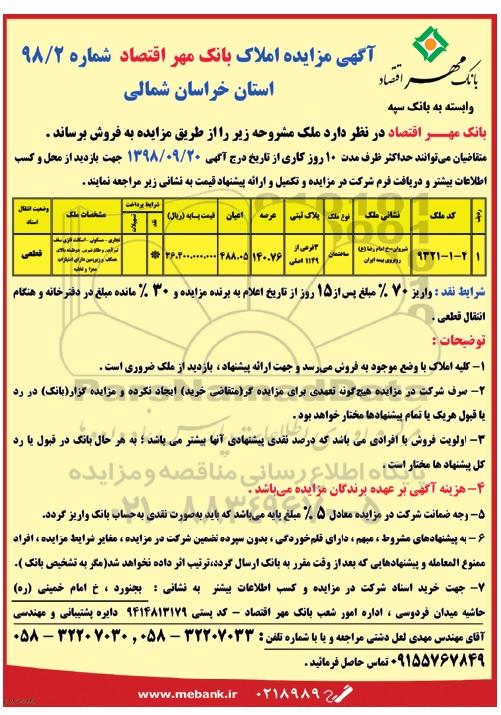 آگهی مزایده املاک بانک مهر اقتصاد شماره ۹۸/۲
استان خراسان شمالی
بانک مهر اقتصاد
وابسته به بانک سپه
بانک مهـــر اقتصاد در نظر دارد ملک مشروحه زیر را از طریق مزایده به فروش برساند .
متقاضیان می‌توانند حداکثر ظرف مدت ۱۰ روز کاری از تاریخ درج آگهی ۱۳۹۸/۰۹/۲۰ جهت بازدید از محل و کسب
اطلاعات بیشتر و دریافت فرم شرکت در مزایده و تکمیل و ارائه پیشنهاد قیمت به نشانی زیر مراجعه نمایند .
ردیف کد ملک نشانی ملک نوع ملک پلاک ثبتی عرصه اعیان قیمت پایه (ریال) شرایط پرداخت نقد تسهیلات مشخصات ملک وضعیت انتقال اسناد
۱ ۹۳۲۱-۱-۲ شیروان-خ امام رضا (ع) روبروی بیمه ایران ساختمان ۳فرعی از ۱۱۴۹ اصلی ۱۴۰.۷۶ ۴۸۸.۰۵ ۲۶.۴۰۰.۰۰۰.۰۰۰ * تجاری - مسکونی - اسکلت فلزی سقف همکف و زیرزمین دارای امتیازات مجزا و تخلیه قطعی
شرایط نقد : واریز ۷۰ ٪ مبلغ پس از ۱۵ روز از تاریخ اعلام به برنده مزایده و ۳۰ ٪ مانده مبلغ در دفترخانه و هنگام
انتقال قطعی .
توضیحات :
۱- کلیه املاک با وضع موجود به فروش می‌رسد و جهت ارائه پیشنهاد ، بازدید از ملک ضروری است .
۲- صرف شرکت در مزایده هیچ‌گونه تعهدی برای مزایده گر(متقاضی خرید) ایجاد نکرده و مزایده گزار(بانک) در رد
یا قبول هریک یا تمام پیشنهادها مختار خواهد بود .
۳- اولویت فروش با افرادی می باشد که درصد نقدی پیشنهادی آنها بیشتر می باشد ؛ به هر حال بانک در قبول یا رد
کل پیشنهاد ها مختار است .
۴- هزینه آگهی بر عهده برندگان مزایده می‌باشد .
۵- وجه ضمانت شرکت در مزایده معادل ۵ ٪ مبلغ پایه می‌باشد که باید به‌صورت نقدی به‌حساب بانک واریز گردد.
۶- به پیشنهادهای مشروط ، مبهم ، دارای قلم‌خوردگی ، بدون سپرده تضمین شرکت در مزایده ، مغایر شرایط مزایده ، افراد
ممنوع المعامله و پیشنهادهایی که بعد از وقت مقرر به بانک ارسال گردد،ترتیب اثر داده نخواهد شد(مگر به تشخیص بانک ).
۷- جهت خرید اسناد شرکت در مزایده و کسب اطلاعات بیشتر به نشانی : بجنورد ، خ امام خمینی (ره)
حاشیه میدان فردوسی ، اداره امور شعب بانک مهر اقتصاد - کد پستی ۹۴۱۴۸۱۳۱۷۹ دایره پشتیبانی و مهندسی
آقای مهندس مهدی لعل دشتی مراجعه و یا با شماره تلفن : ۳۲۲۰۷۰۳۳ - ۰۵۸ , ۳۲۲۰۷۰۳۰ - ۰۵۸
۰۹۱۵۵۷۶۷۸۴۹ تماس حاصل فرمائید .
www.mebank.ir ۰۲۱۸۹۸۹
ParsNamadData
پایگاه اطلاع رسانی مناقصه و مزایده
۰۲۱-۸۸۳۴۹۶۷۰-۵